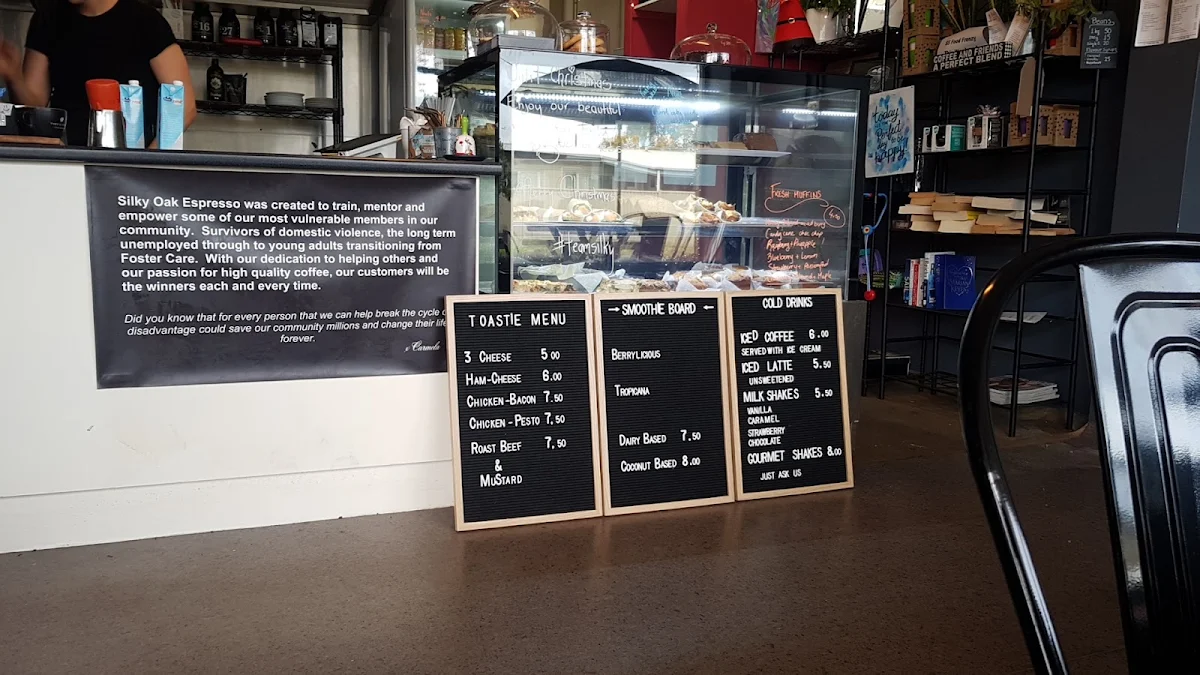 Silky Oak Espresso was created to train, mentor and
empower some of our most vulnerable members in our
community. Survivors of domestic violence, the long term
unemployed through to young adults transitioning from
Foster Care. With our dedication to helping others and
our passion for high quality coffee, our customers will be
the winners each and every time.
Did you know that for every person that we can help break the cycle
disadvantage could save our community millions and change their life
forever.
x Carmela
TOASTIE MENU
3 CHEESE 5.00
HAM-CHEESE 6.00
CHICKEN-BACON 7.50
CHICKEN-PESTO 7.50
ROAST BEEF 7.50
&
MUSTARD
SMOOTHIE BOARD
BERRYLICIOUS
TROPICANA
DAIRY BASED 7.50
COCONUT BASED 8.00
COLD DRINKS
ICED COFFEE 6.00
SERVED WITH ICE CREAM
ICED LATTE 5.50
UNSWEETENED
MILK SHAKES 5.50
VANILLA
CARAMEL
STRAWBERRY
CHOCOLATE
GOURMET SHAKES 8.00
JUST ASK US
Christmas
Enjoy our beautiful
Christmas
#teamsilky
FRESH MUFFINS
Candy cane choc chip
Blueberry + Lemon
COFFEE AND FRIENDS
A PERFECT BLEND
today
perfect
happy
Beans